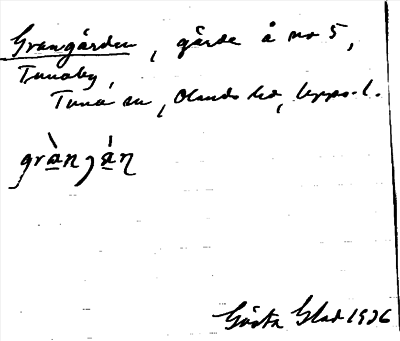 Grangärden, gärde å no 5,
Tunaby,
Tuna sn, Olands hd, Upps. l.
grànján
Gösta Glad 1926